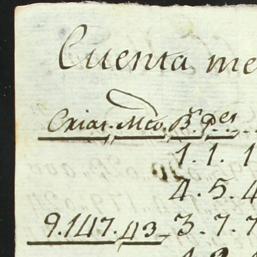 Cuenta me
Criat. Mco. Rs. Ps.
1. 1. 1
4. 5. 4
9.147. 43 3. 7. 7